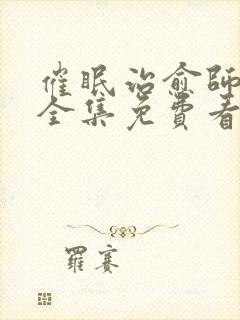 催眠治愈師
全集免費看
羅賽